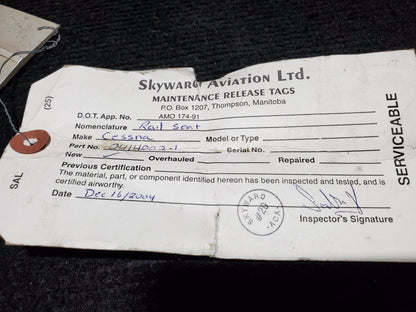 SKYWARD AVIATION LTD.
MAINTENANCE RELEASE TAGS
P.O. Box 1207, Thompson, Manitoba
D.O.T. App. No. AMO 174-91
Nomenclature Rail Seat
Make Cessna Model or Type
Part No. 0414002-1 Serial No.
New ✓ Overhauled Repaired
Previous Certification
The material, part, or component identified hereon has been inspected and tested, and is
certified airworthy.
Date Dec 16/2004
Inspector's Signature
SKYWARD
#20
ACA
(25)
SAL
SERVICEABLE